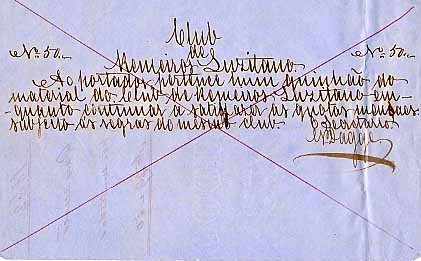 Club
de
Nº 50. Nº 50.
Remeiros Luzitano.
Ao portador pertence hum quinhão do
material do Club de Remeiros Luzitano em-
quanto continuar a satisfazer as quotas mensaes
sujeito ás regras do mesmo club.
O Secretario